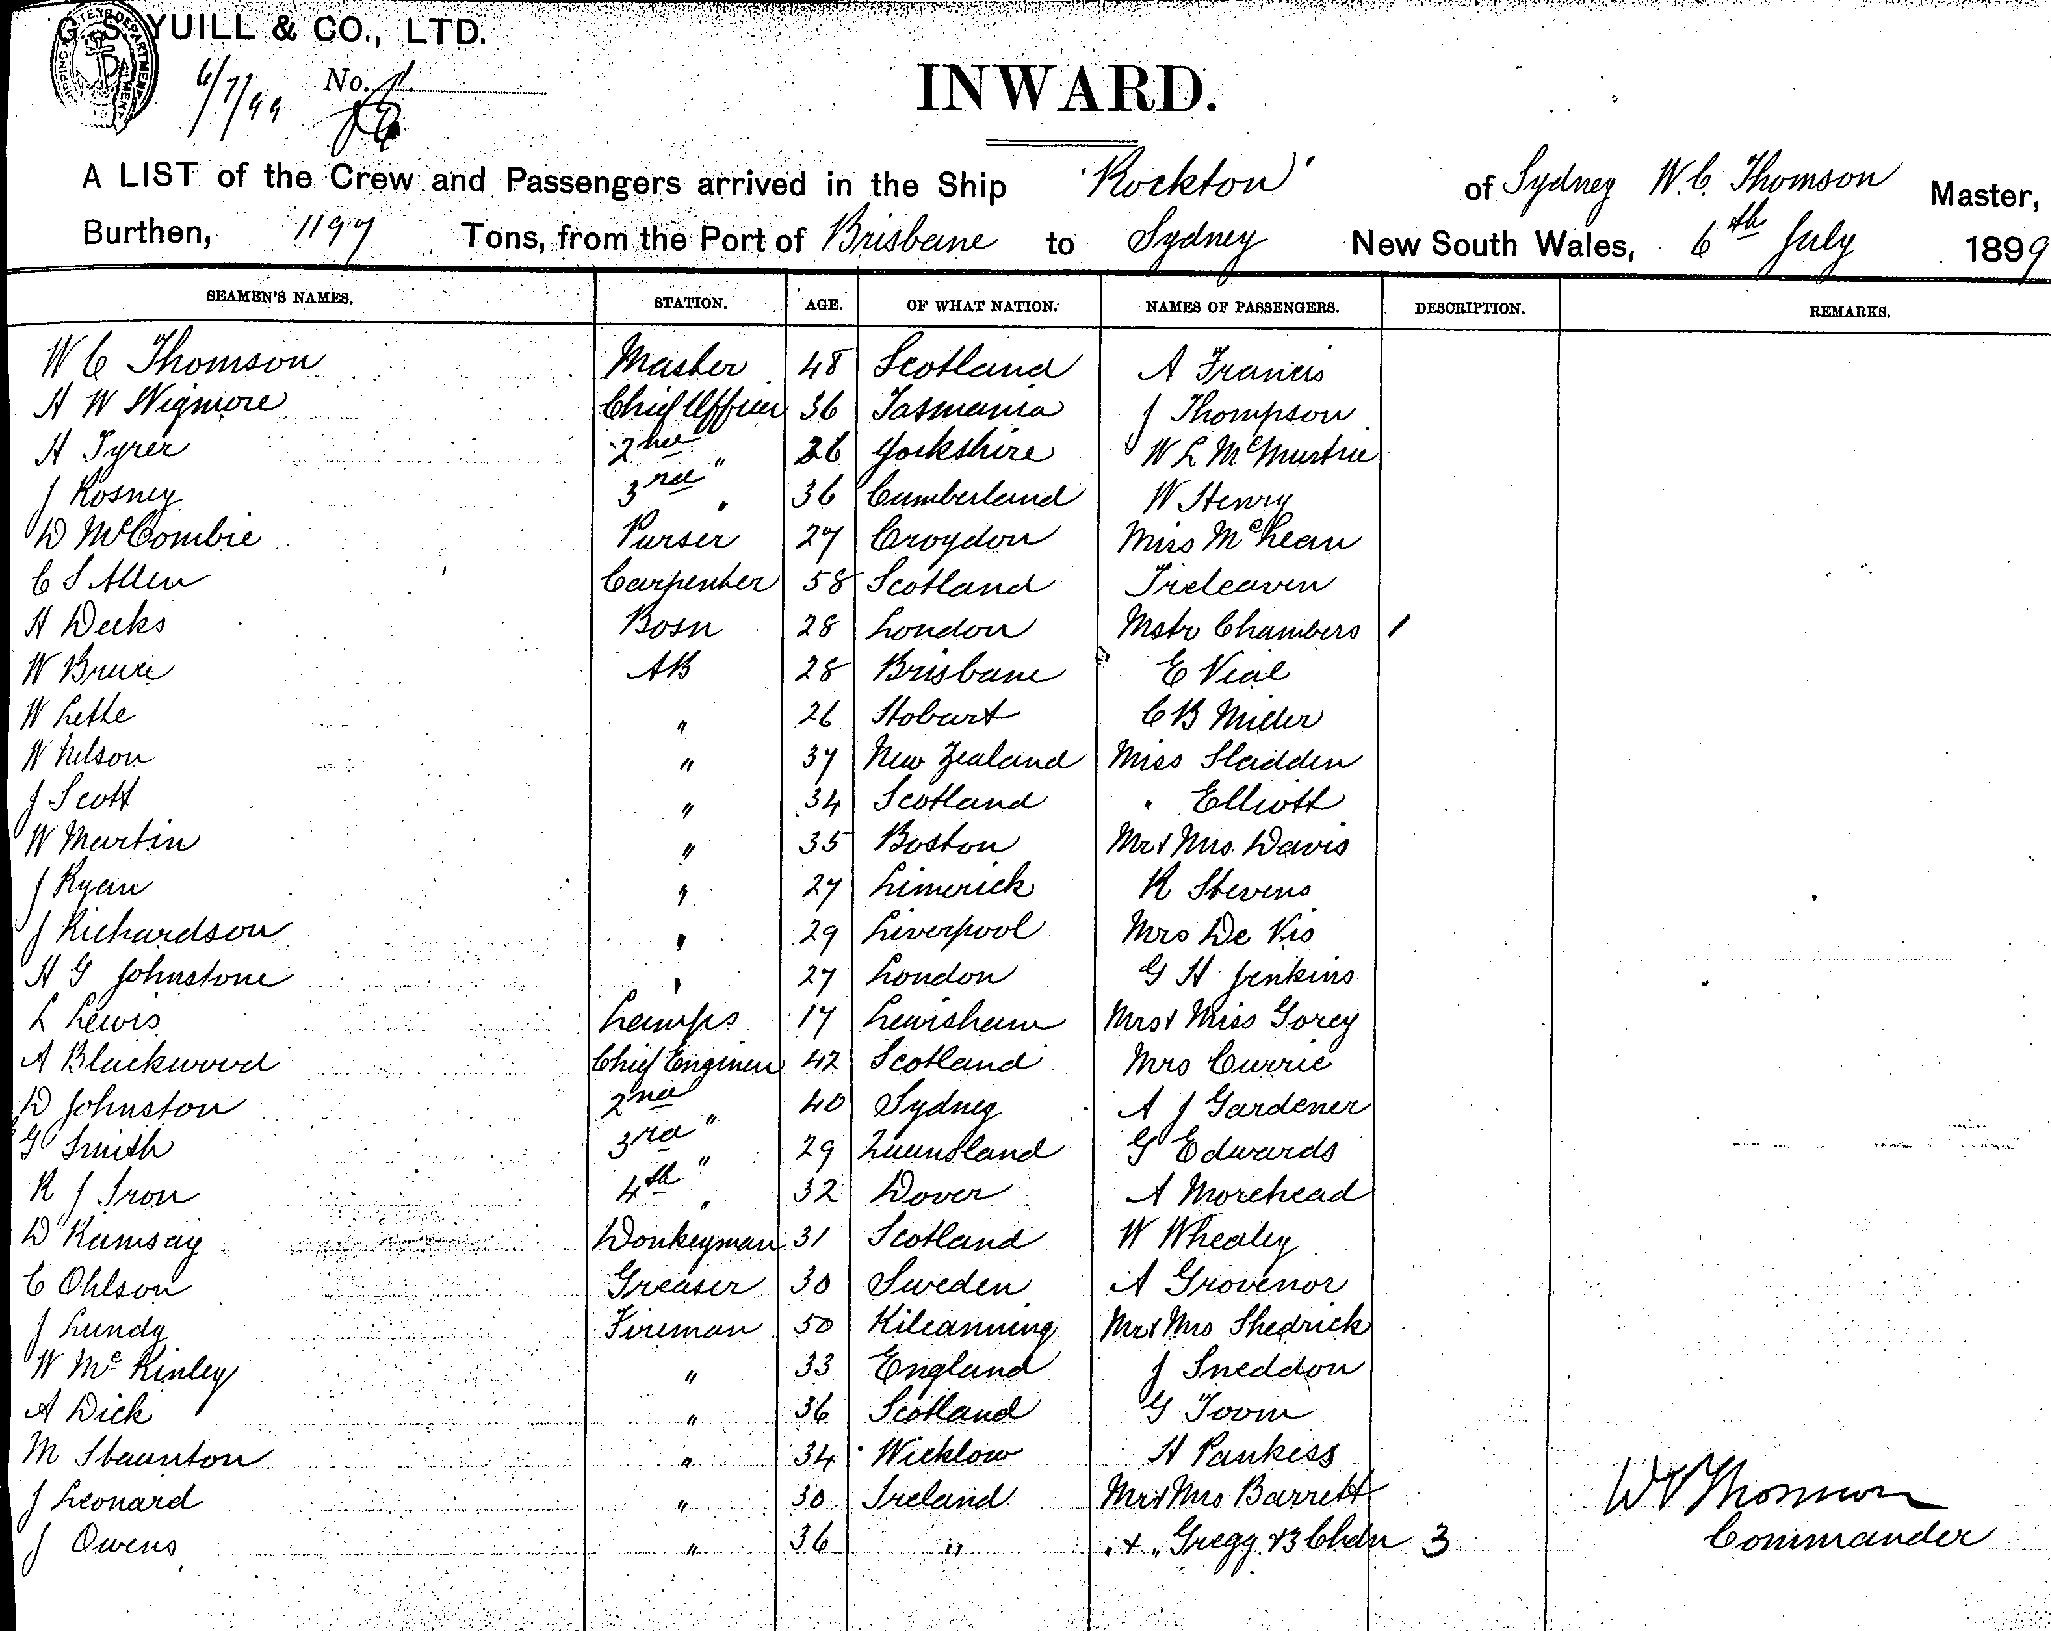 G. S. YUILL & CO., LTD.
6/7/99 No.
INWARD.
A LIST of the Crew and Passengers arrived in the Ship 'Rockton' of Sydney W. C. Thomson Master,
Burthen, 1197 Tons, from the Port of Brisbane to Sydney New South Wales, 6th July 1899
SEAMEN'S NAMES. STATION. AGE. OF WHAT NATION. NAMES OF PASSENGERS. DESCRIPTION. REMARKS.
W C Thomson Master 48 Scotland A Francis
A W Wigmore Chief Officer 36 Tasmania J Thompson
A Tyrer 2nd " 26 Yorkshire W L McMurtrie
J Rosney 3rd " 36 Cumberland W Henry
D McCombie Purser 27 Croydon Miss McLean
C S Allen Carpenter 58 Scotland Treleaven
A Deeks Bosn 28 London Mstr Chambers 1
W Bruce AB 28 Brisbane E Vial
W Lette " 26 Hobart C B Miller
W Nelson " 37 New Zealand Miss Sladden
J Scott " 34 Scotland " Elliott
W Martin " 35 Boston Mr & Mrs Davis
J Ryan " 27 Limerick R Stevens
J Richardson " 29 Liverpool Mrs De Vis
A G Johnstone " 27 London G H Jenkins
L Lewis Lamps 17 Lewisham Mrs & Miss Gorey
A Blackwood Chief Engineer 42 Scotland Mrs Currie
D Johnston 2nd " 40 Sydney A J Gardener
G Smith 3rd " 29 Queensland G Edwards
R J Iron 4th " 32 Dover A Morehead
D Ramsay Donkeyman 31 Scotland W Whealey
C Ohlson Greaser 30 Sweden A Grovenor
J Lundy Fireman 50 Kilcanning Mr & Mrs Shedrick
W McKinley " 33 England J Sneddon
A Dick " 36 Scotland G Toom
M Staunton " 34 Wicklow H Pankiss
J Leonard " 30 Ireland Mr & Mrs Barrett
J Owens " 36 " " & " Gregg & 3 Chdn 3
W C Thomson
Commander